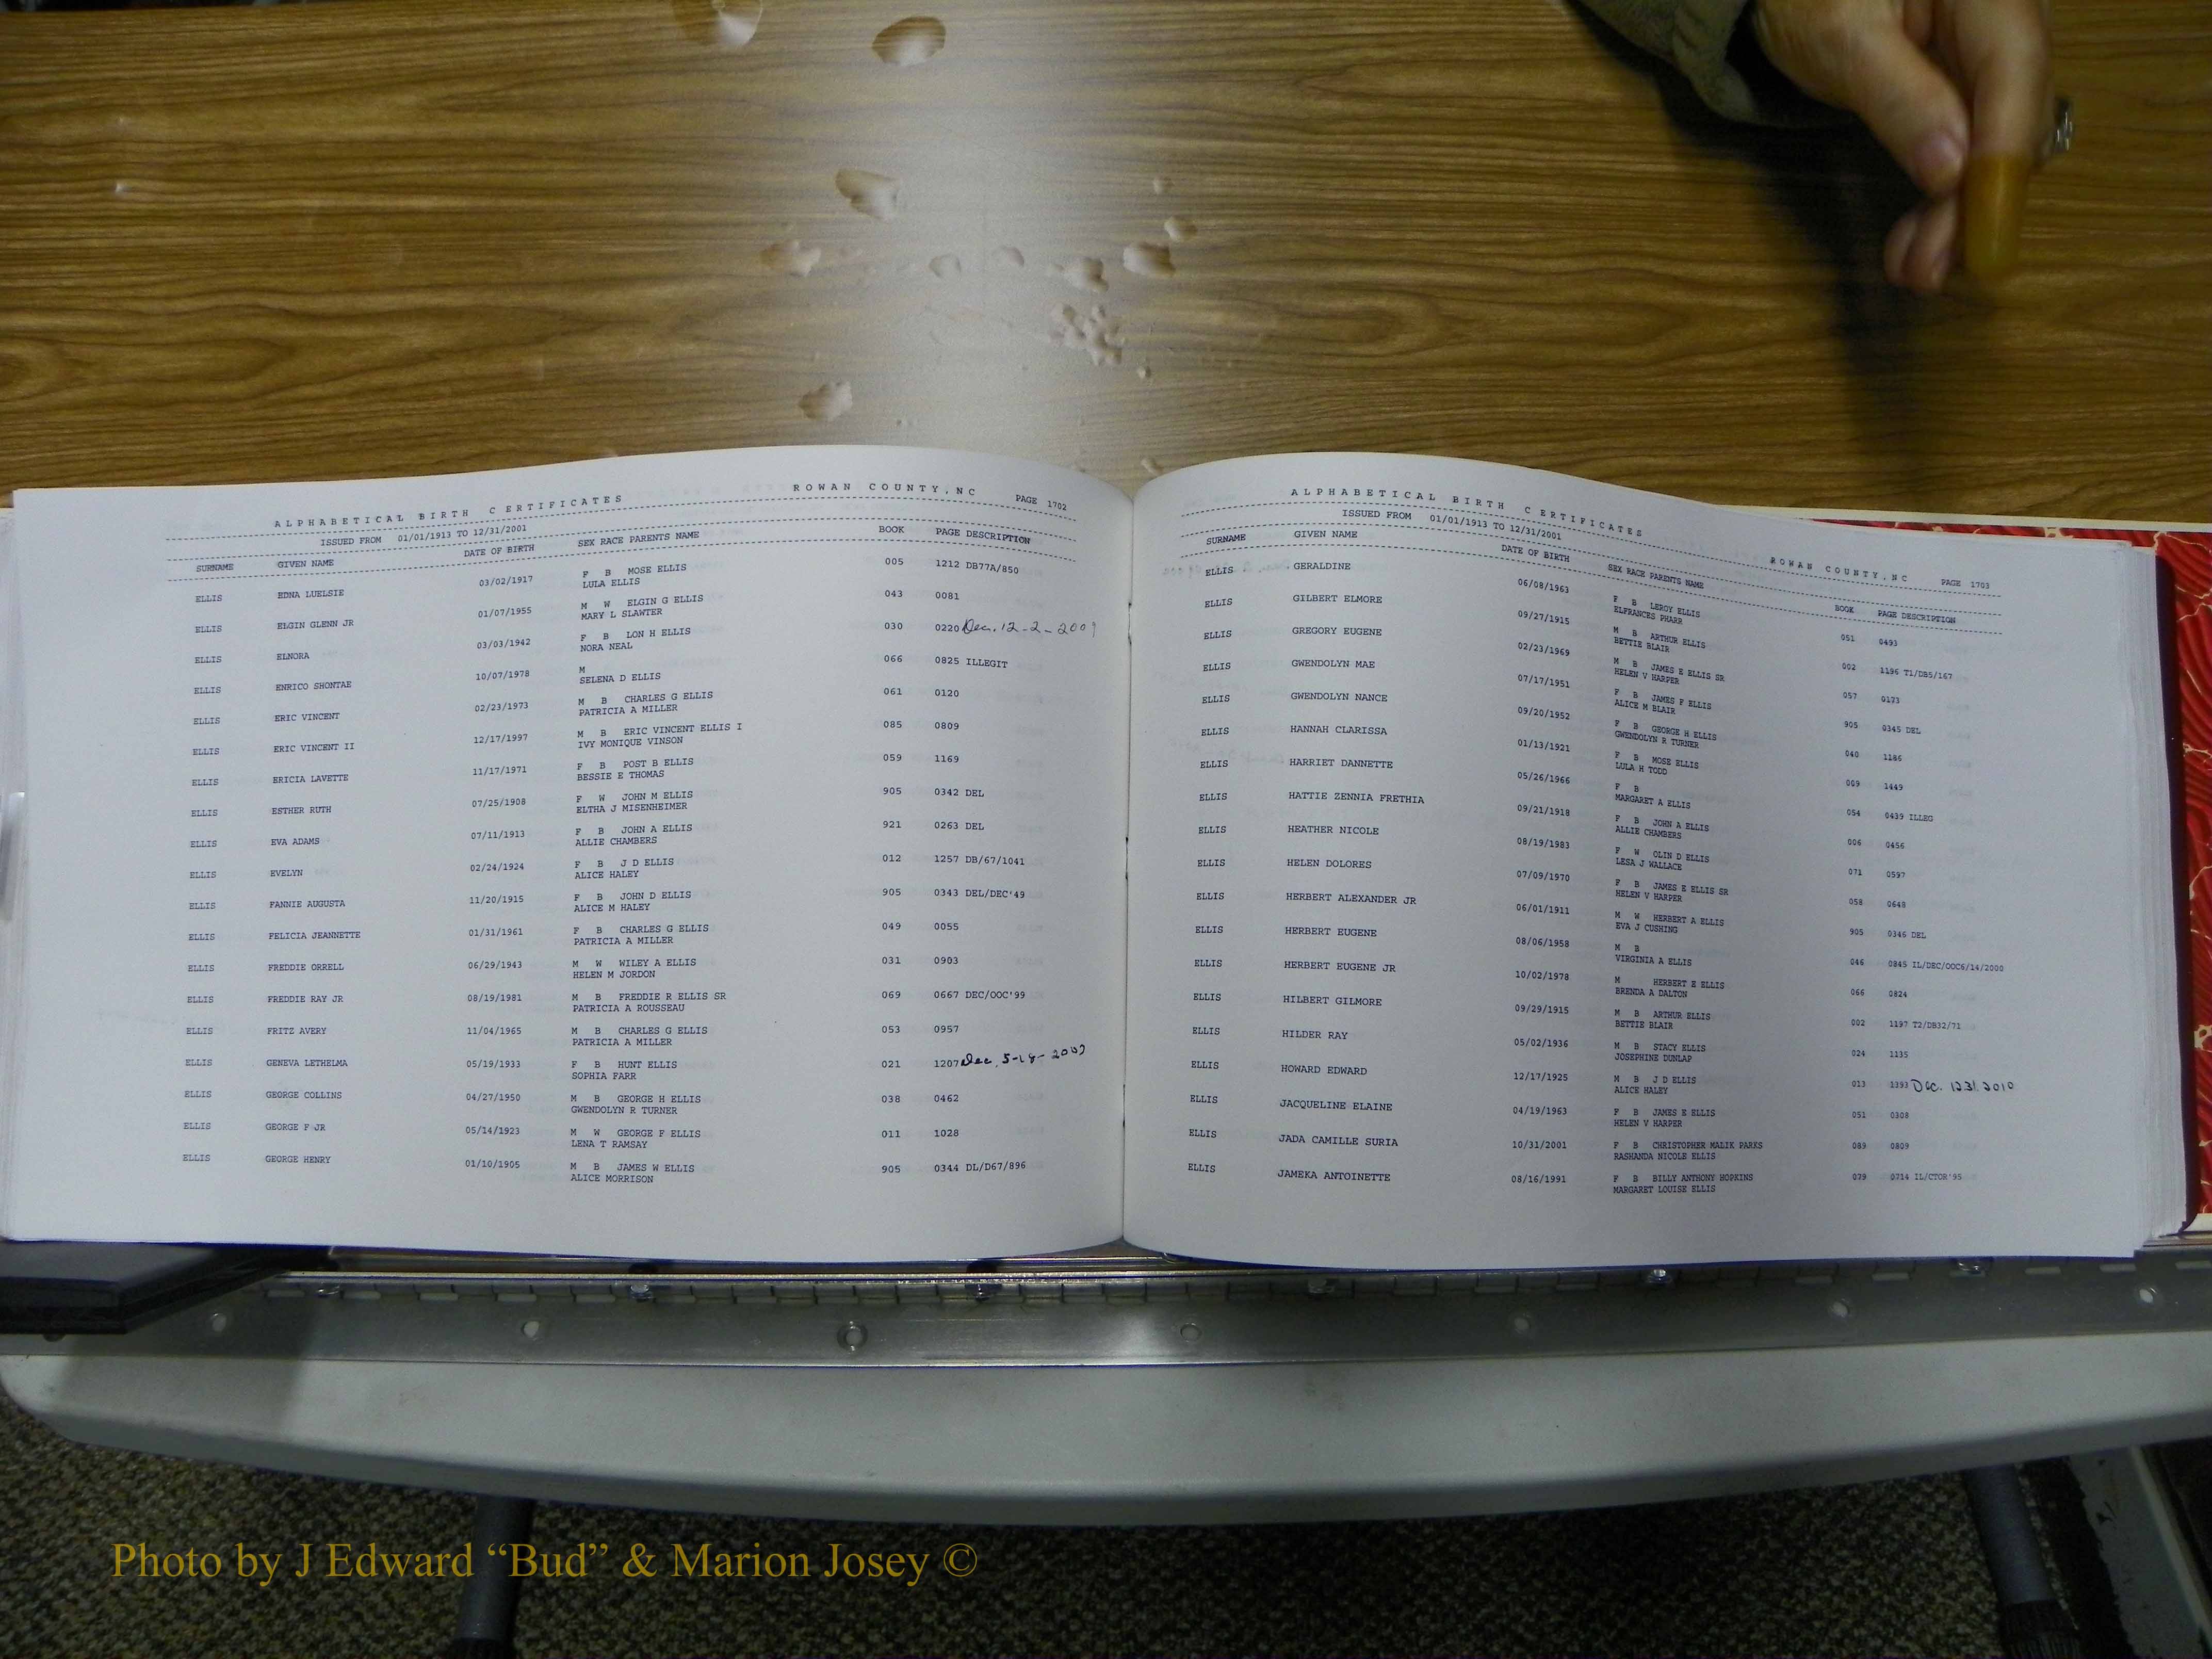 ALPHABETICAL BIRTH CERTIFICATES ROWAN COUNTY,NC PAGE 1702
ISSUED FROM 01/01/1913 TO 12/31/2001
SURNAME GIVEN NAME DATE OF BIRTH SEX RACE PARENTS NAME BOOK PAGE DESCRIPTION
ELLIS EDNA LUELSIE 03/02/1917 F B MOSE ELLIS 005 1212 DB77A/850
LULA ELLIS
ELLIS ELGIN GLENN JR 01/07/1955 M W ELGIN G ELLIS 043 0081
MARY L SLAWTER
ELLIS ELNORA 03/03/1942 F B LON H ELLIS 030 0220 Dec. 12-2-2009
NORA NEAL
ELLIS ENRICO SHONTAE 10/07/1978 M 066 0825 ILLEGIT
SELENA D ELLIS
ELLIS ERIC VINCENT 02/23/1973 M B CHARLES G ELLIS 061 0120
PATRICIA A MILLER
ELLIS ERIC VINCENT II 12/17/1997 M B ERIC VINCENT ELLIS I 085 0809
IVY MONIQUE VINSON
ELLIS ERICIA LAVETTE 11/17/1971 F B POST B ELLIS 059 1169
BESSIE E THOMAS
ELLIS ESTHER RUTH 07/25/1908 F W JOHN M ELLIS 905 0342 DEL
ELTHA J MISENHEIMER
ELLIS EVA ADAMS 07/11/1913 F B JOHN A ELLIS 921 0263 DEL
ALLIE CHAMBERS
ELLIS EVELYN 02/24/1924 F B J D ELLIS 012 1257 DB/67/1041
ALICE HALEY
ELLIS FANNIE AUGUSTA 11/20/1915 F B JOHN D ELLIS 905 0343 DEL/DEC'49
ALICE M HALEY
ELLIS FELICIA JEANNETTE 01/31/1961 F B CHARLES G ELLIS 049 0055
PATRICIA A MILLER
ELLIS FREDDIE ORRELL 06/29/1943 M W WILEY A ELLIS 031 0903
HELEN M JORDON
ELLIS FREDDIE RAY JR 08/19/1981 M B FREDDIE R ELLIS SR 069 0667 DEC/OOC'99
PATRICIA A ROUSSEAU
ELLIS FRITZ AVERY 11/04/1965 M B CHARLES G ELLIS 053 0957
PATRICIA A MILLER
ELLIS GENEVA LETHELMA 05/19/1933 F B HUNT ELLIS 021 1207 Dec. 5-18-2009
SOPHIA FARR
ELLIS GEORGE COLLINS 04/27/1950 M B GEORGE H ELLIS 038 0462
GWENDOLYN R TURNER
ELLIS GEORGE F JR 05/14/1923 M W GEORGE F ELLIS 011 1028
LENA T RAMSAY
ELLIS GEORGE HENRY 01/10/1905 M B JAMES W ELLIS 905 0344 DL/D67/896
ALICE MORRISON
ALPHABETICAL BIRTH CERTIFICATES ROWAN COUNTY,NC PAGE 1703
ISSUED FROM 01/01/1913 TO 12/31/2001
SURNAME GIVEN NAME DATE OF BIRTH SEX RACE PARENTS NAME BOOK PAGE DESCRIPTION
ELLIS GERALDINE 06/08/1963 F B LEROY ELLIS 051 0493
ELFRANCES PHARR
ELLIS GILBERT ELMORE 09/27/1915 M B ARTHUR ELLIS 002 1196 T1/DB5/167
BETTIE BLAIR
ELLIS GREGORY EUGENE 02/23/1969 M B JAMES E ELLIS SR 057 0173
HELEN V HARPER
ELLIS GWENDOLYN MAE 07/17/1951 F B JAMES F ELLIS 905 0345 DEL
ALICE M BLAIR
ELLIS GWENDOLYN NANCE 09/20/1952 F B GEORGE H ELLIS 040 1186
GWENDOLYN R TURNER
ELLIS HANNAH CLARISSA 01/13/1921 F B MOSE ELLIS 009 1449
LULA H TODD
ELLIS HARRIET DANNETTE 05/26/1966 F B 054 0439 ILLEG
MARGARET A ELLIS
ELLIS HATTIE ZENNIA FRETHIA 09/21/1918 F B JOHN A ELLIS 006 0456
ALLIE CHAMBERS
ELLIS HEATHER NICOLE 08/19/1983 F W OLIN D ELLIS 071 0597
LESA J WALLACE
ELLIS HELEN DOLORES 07/09/1970 F B JAMES E ELLIS SR 058 0648
HELEN V HARPER
ELLIS HERBERT ALEXANDER JR 06/01/1911 M W HERBERT A ELLIS 905 0346 DEL
EVA J CUSHING
ELLIS HERBERT EUGENE 08/06/1958 M B 046 0845 IL/DEC/OOC6/14/2000
VIRGINIA A ELLIS
ELLIS HERBERT EUGENE JR 10/02/1978 M HERBERT E ELLIS 066 0824
BRENDA A DALTON
ELLIS HILBERT GILMORE 09/29/1915 M B ARTHUR ELLIS 002 1197 T2/DB32/71
BETTIE BLAIR
ELLIS HILDER RAY 05/02/1936 M B STACY ELLIS 024 1135
JOSEPHINE DUNLAP
ELLIS HOWARD EDWARD 12/17/1925 M B J D ELLIS 013 1393 Dec.
ALICE HALEY
ELLIS JACQUELINE ELAINE 04/19/1963 F B JAMES E ELLIS 051 0308
HELEN V HARPER
ELLIS JADA CAMILLE SURIA 10/31/2001 F B CHRISTOPHER MALIK PARKS 089 0809
RASHANDA NICOLE ELLIS
ELLIS JAMEKA ANTOINETTE 08/16/1991 F B BILLY ANTHONY HOPKINS 079 0714 IL/CTOR'95
MARGARET LOUISE ELLIS
Photo by J Edward “Bud” & Marion Josey ©